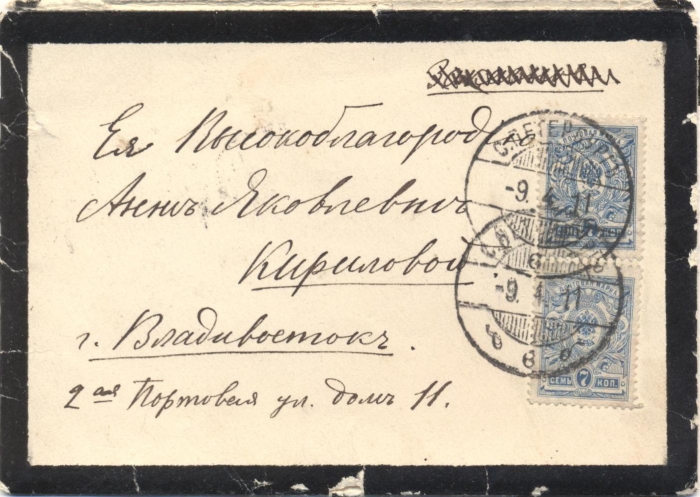 Ея Высокоблагород
Аннѣ Яковлевнѣ
Кириловой
г. Владивостокъ.
2ая Портовая ул. домъ 11.
С.ПЕТЕРБУРГЪ
-9.4.11
6
-9.4.11
СЕМЬ 7 КОП.